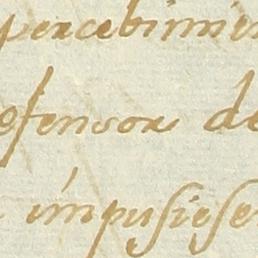 percebimien
efensor de
impusiese